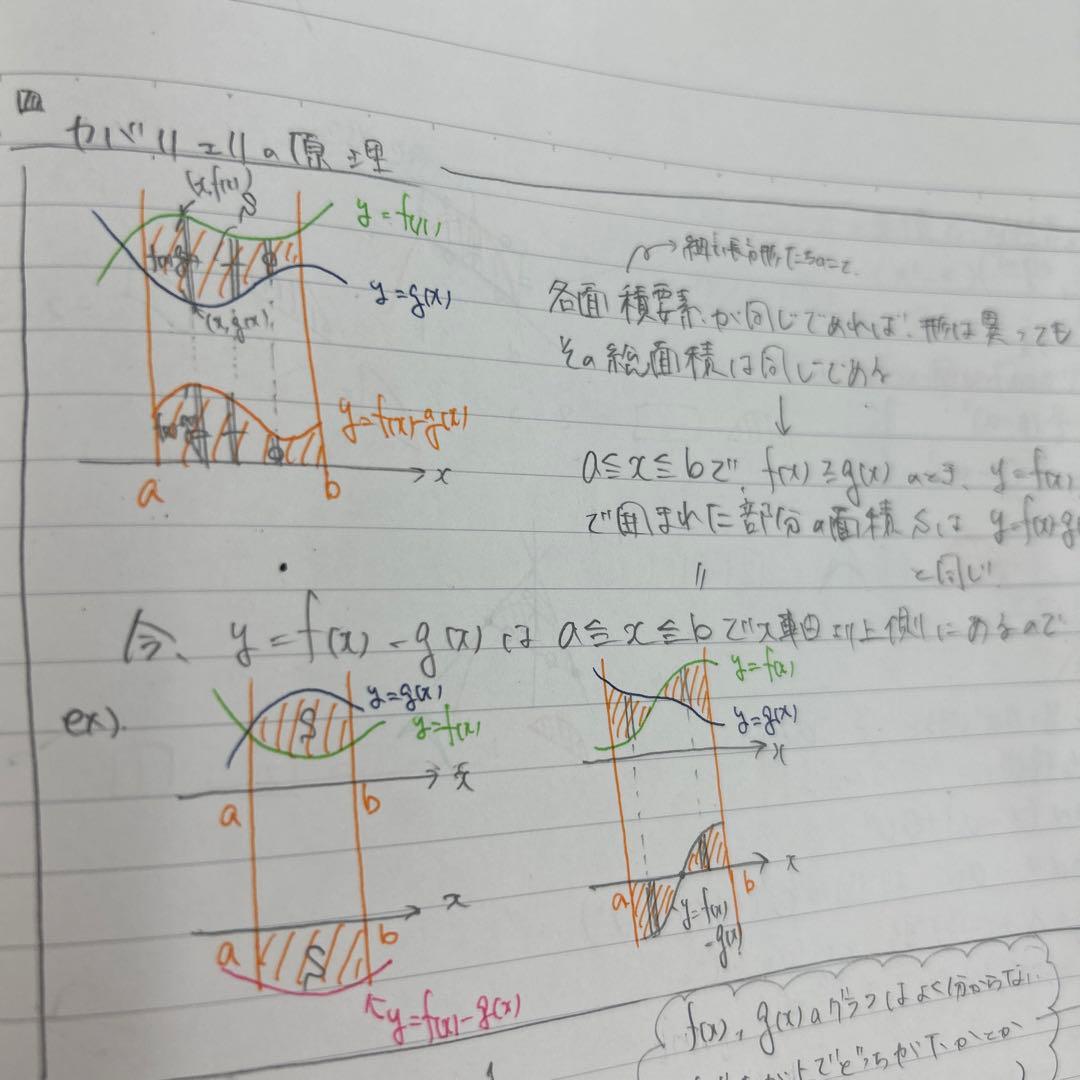 カバリエリの原理
(x,f(x))
S
y=f(x)
y=g(x)
(x,g(x))
y=f(x)-g(x)
a
b
x
各面積要素が同じであれば、形は異っても
その総面積は同じである
↓
a≦x≦bで、f(x)≧g(x)のとき、y=f(x)
で囲まれた部分の面積Sは y=f(x)-g
と同じ
〃
今、y=f(x)-g(x)は a≦x≦bでx軸より上側にあるので
ex).
y=g(x)
y=f(x)
S
x
a
b
x
a
b
S
y=f(x)-g(x)
y=f(x)
y=g(x)
x
x
a
b
y=f(x)
-g(x)
f(x), g(x)のグラフはよく分からない
どちらが下かとか